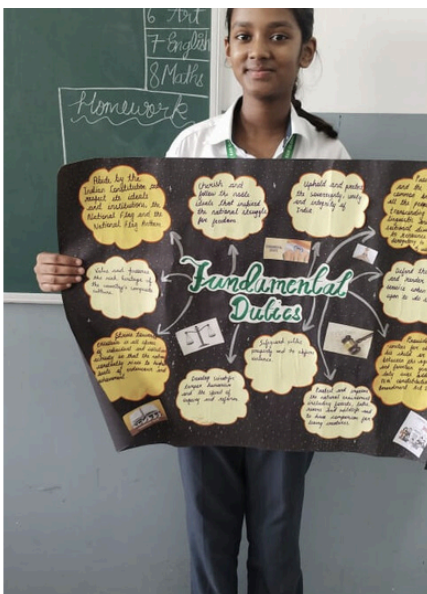 6 Art
7 English
8 Maths
Homework
Abide by the
Indian Constitution
respect its ideals
and institutions, the
National Flag and the
National Anthem
Cherish and
follow the noble
ideals that inspired
the national struggle
for freedom
Uphold and protect
the sovereignty, unity
and integrity of
India
and the
common
all the
transcending
Value and preserve
the rich heritage of
the country's composite
culture
Fundamental
Duties
Defend the
and render
service when
upon to do
Strive towards
excellence in all spheres
of individual and collective
activity so that the nation
constantly rises to higher
levels of endeavour and
achievement
Develop scientific
temper humanism
and the spirit of
inquiry and reform
Safeguard public
property and to abjure
violence
Protect and improve
the natural environment
including forests, lakes
rivers and wildlife and
to have compassion for
living creatures
his child
between